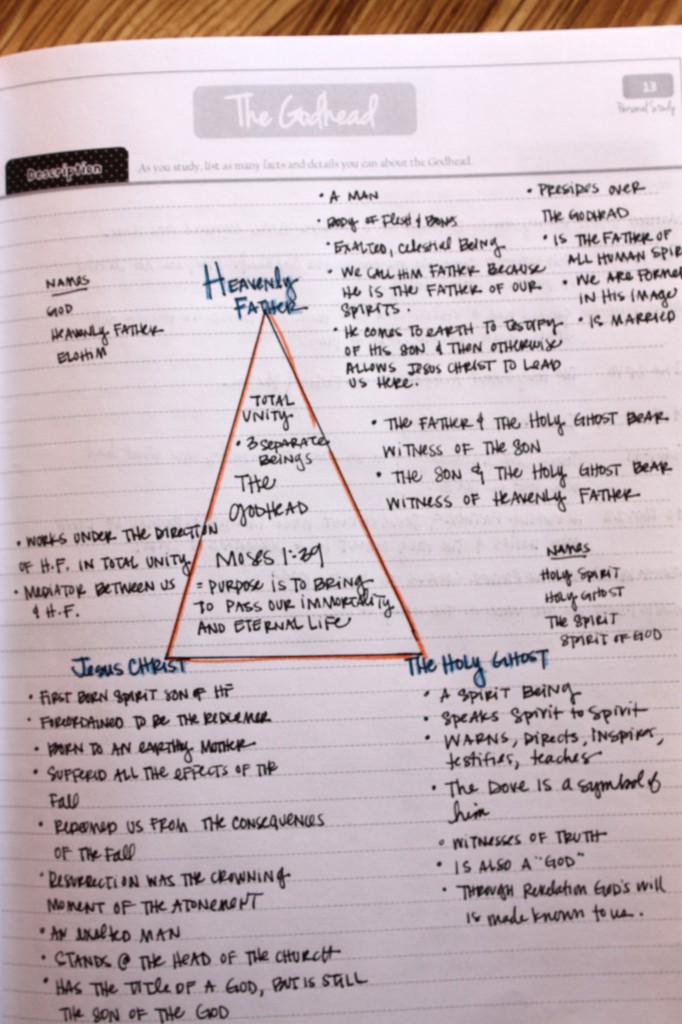 The Godhead
13
Personal Study
Description
As you study, list as many facts and details you can about the Godhead.
NAMES
GOD
HEAVENLY FATHER
ELOHIM
HEAVENLY FATHER
• A MAN
• BODY OF FLESH & BONES
• EXALTED, CELESTIAL BEING
• WE CALL HIM FATHER BECAUSE
HE IS THE FATHER OF OUR
SPIRITS.
• HE COMES TO EARTH TO TESTIFY
OF HIS SON & THEN OTHERWISE
ALLOWS JESUS CHRIST TO LEAD
US HERE.
• PRESIDES OVER
THE GODHEAD
• IS THE FATHER OF
ALL HUMAN SPIR
• WE ARE FORMED
IN HIS IMAGE
• IS MARRIED
TOTAL
UNITY
• 3 SEPARATE
BEINGS
THE
GODHEAD
MOSES 1:39
= PURPOSE IS TO BRING
TO PASS OUR IMMORTALITY
AND ETERNAL LIFE
• THE FATHER & THE HOLY GHOST BEAR
WITNESS OF THE SON
• THE SON & THE HOLY GHOST BEAR
WITNESS OF HEAVENLY FATHER
• WORKS UNDER THE DIRECTION
OF H.F. IN TOTAL UNITY
• MEDIATOR BETWEEN US
& H.F.
NAMES
HOLY SPIRIT
HOLY GHOST
THE SPIRIT
SPIRIT OF GOD
JESUS CHRIST
• FIRST BORN SPIRIT SON OF HF
• FOREORDAINED TO BE THE REDEEMER
• BORN TO AN EARTHLY MOTHER
• SUFFERED ALL THE EFFECTS OF THE
FALL
• REDEEMED US FROM THE CONSEQUENCES
OF THE FALL
• RESURRECTION WAS THE CROWNING
MOMENT OF THE ATONEMENT
• AN EXALTED MAN
• STANDS @ THE HEAD OF THE CHURCH
• HAS THE TITLE OF A GOD, BUT IS STILL
THE SON OF THE GOD
THE HOLY GHOST
• A SPIRIT BEING
• SPEAKS SPIRIT TO SPIRIT
• WARNS, DIRECTS, INSPIRES,
testifies, teaches
• THE DOVE IS A symbol of
him
• WITNESSES OF TRUTH
• IS ALSO A "GOD"
• THROUGH Revelation GOD'S will
is made known to us.